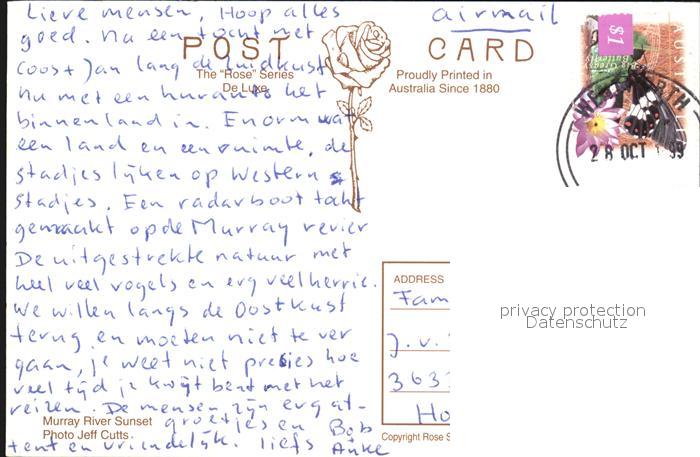 Lieve mensen, Hoop alles
goed. Na een tocht met
(oost) an lang de zuidkust
nu met een huurauto het
binnenland in. Enorm wat
een land en een ruimte, de
stadjes lijken op Western
stadjes. Een radarboot tocht
gemaakt op de Murray revier
De uitgestrekte natuur met
heel veel vogels en erg veel herrie.
We willen langs de Oostkust
terug en moeten niet te ver
gaan, je weet niet presies hoe
veel tijd je kwijt bent met het
reizen. De mensen zijn erg at-
tent en vriendelijk. liefs
groetjes en Bob
Anke
airmail
POST CARD
The "Rose" Series
De Luxe
Proudly Printed in
Australia Since 1880
$1
WENTWORTH
28 OCT 1999
ADDRESS
Fam
J.v.
363
Ho
privacy protection
Datenschutz
Murray River Sunset
Photo Jeff Cutts
Copyright Rose S